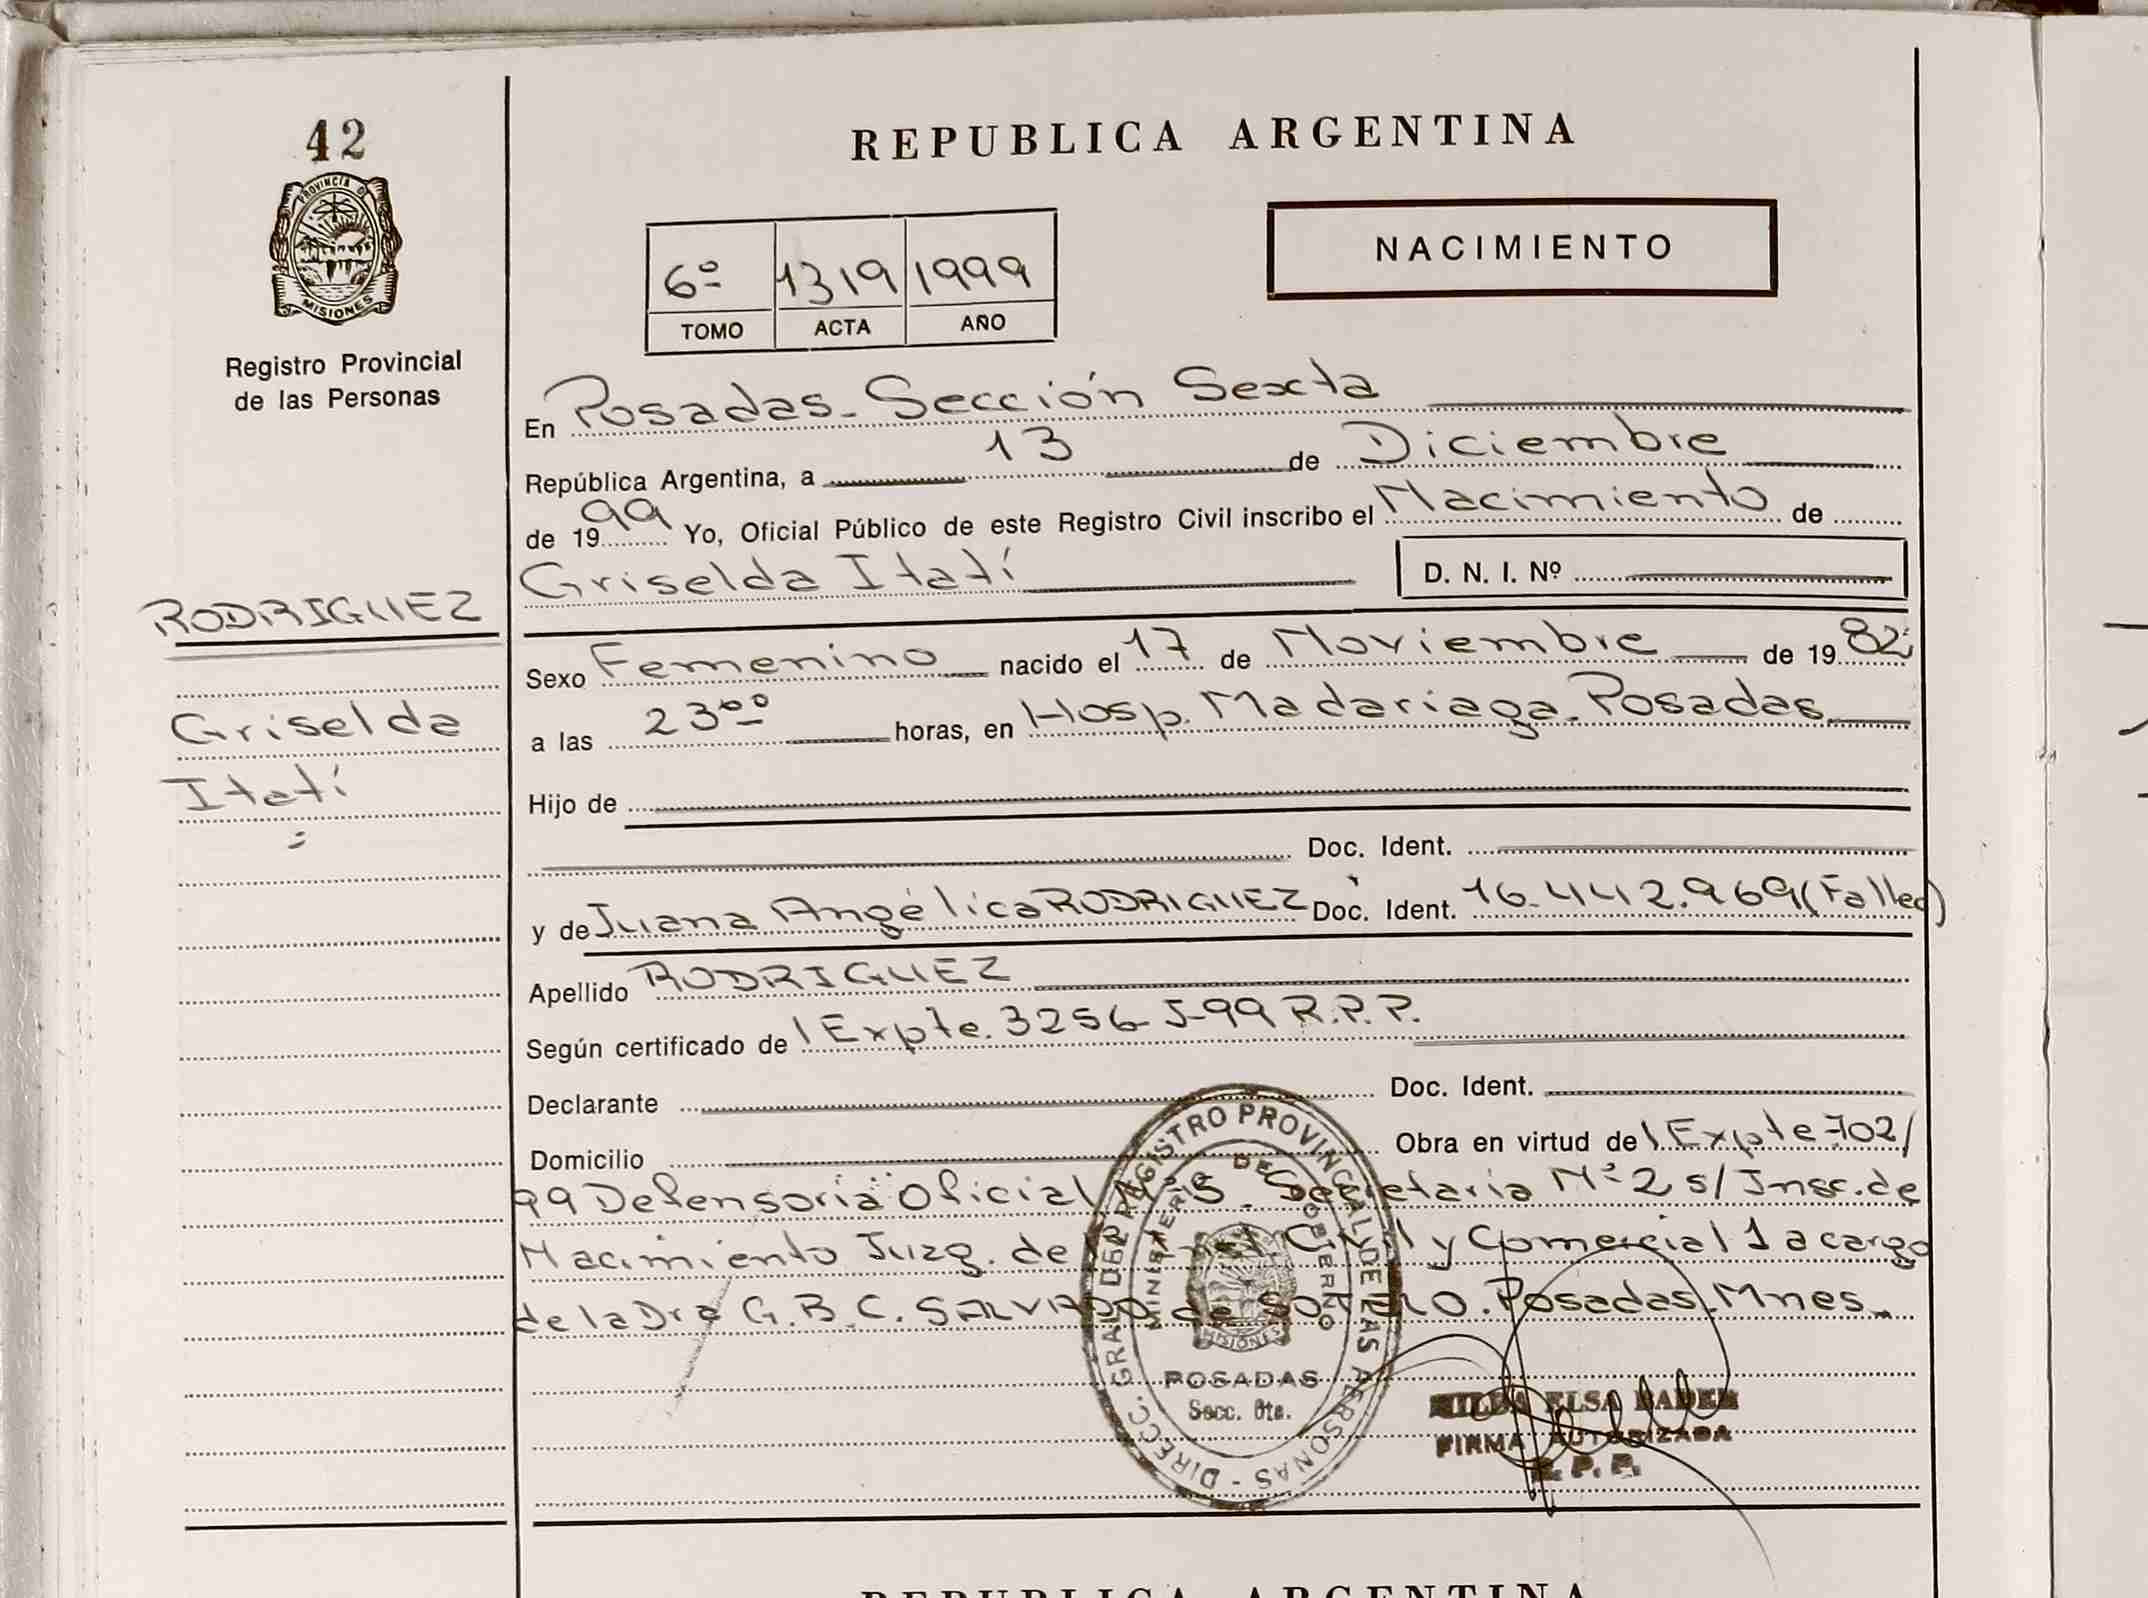 42
PROVINCIA D
MISIONES
Registro Provincial
de las Personas
RODRIGUEZ
Griselda
Itatí
REPUBLICA ARGENTINA
6º 1319 1999
TOMO ACTA AÑO
NACIMIENTO
En Posadas - Sección Sexta
República Argentina, a 13 de Diciembre
de 1999 Yo, Oficial Público de este Registro Civil inscribo el Nacimiento de
Griselda Itatí D. N. I. Nº
Sexo Femenino nacido el 17 de Noviembre de 1982
a las 23ºº horas, en Hosp. Madariaga. Posadas
Hijo de
Doc. Ident.
y de Juana Angélica RODRIGUEZ Doc. Ident. 16.442.969 (Fallec)
Apellido RODRIGUEZ
Según certificado de Expte. 3256-J-99 R.P.P.
Declarante Doc. Ident.
Domicilio Obra en virtud de Expte 702/
99 Defensoría Oficial Nº 5 Secretaria Nº 2 s/ Insc. de
Nacimiento Juzg. de Civil y Comercial 1 a cargo
de la Dra G. B. C. SALVADO de SOTELO. Posadas. Mnes.
DIRECC. GRAL DEL REGISTRO PROVINCIAL DE LAS PERSONAS
MINISTERIO DE GOBIERNO
MISIONES
POSADAS
Secc. 6ta.
ELSA BADER
FIRMA AUTORIZADA
R. P. P.
REPUBLICA ARGENTINA